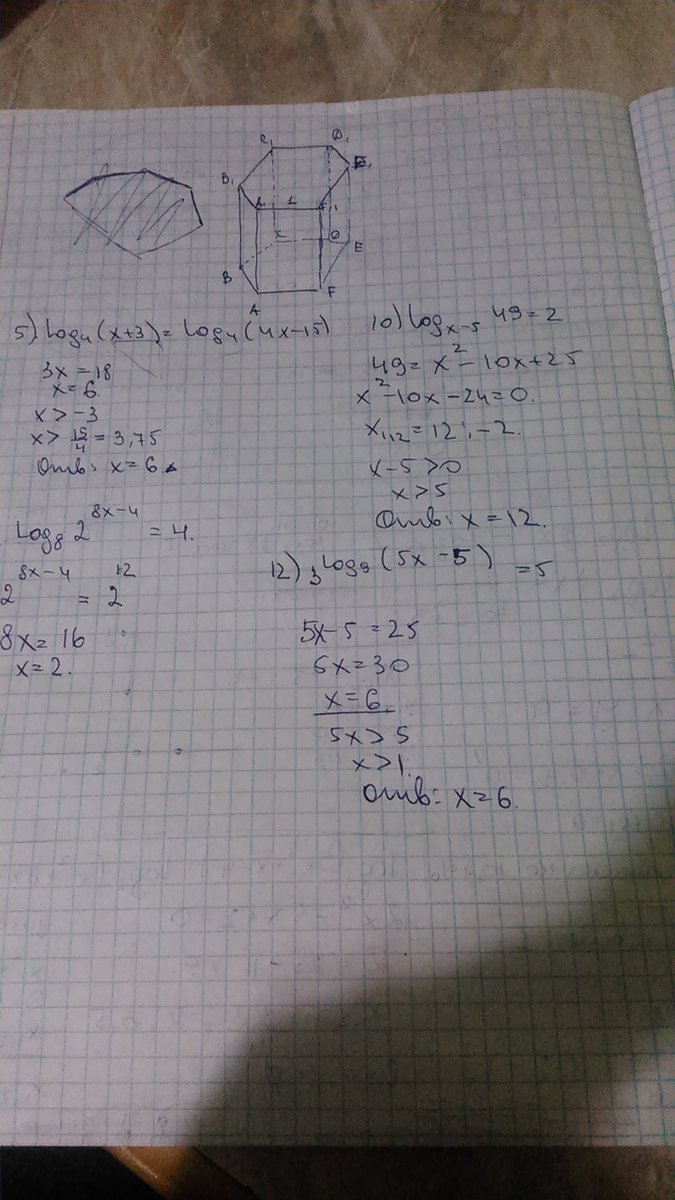 C₁ D₁
B₁ E₁
A₁ 1 F₁
C D E
B
A F
5) log₄(x+3) = log₄(4x-15)
3x = 18
x = 6.
x > -3
x > 15/4 = 3,75
Отв: x = 6.
log₈ 2^(8x-4) = 4.
2^(8x-4) = 2^12
8x = 16
x = 2.
10) log_(x-5) 49 = 2
49 = x² - 10x + 25
x² - 10x - 24 = 0.
x₁,₂ = 12; -2.
x - 5 > 0
x > 5
Отв: x = 12.
12) 3^(log₉(5x-5)) = 5
5x - 5 = 25
5x = 30
x = 6.
5x > 5
x > 1.
Отв: x = 6.